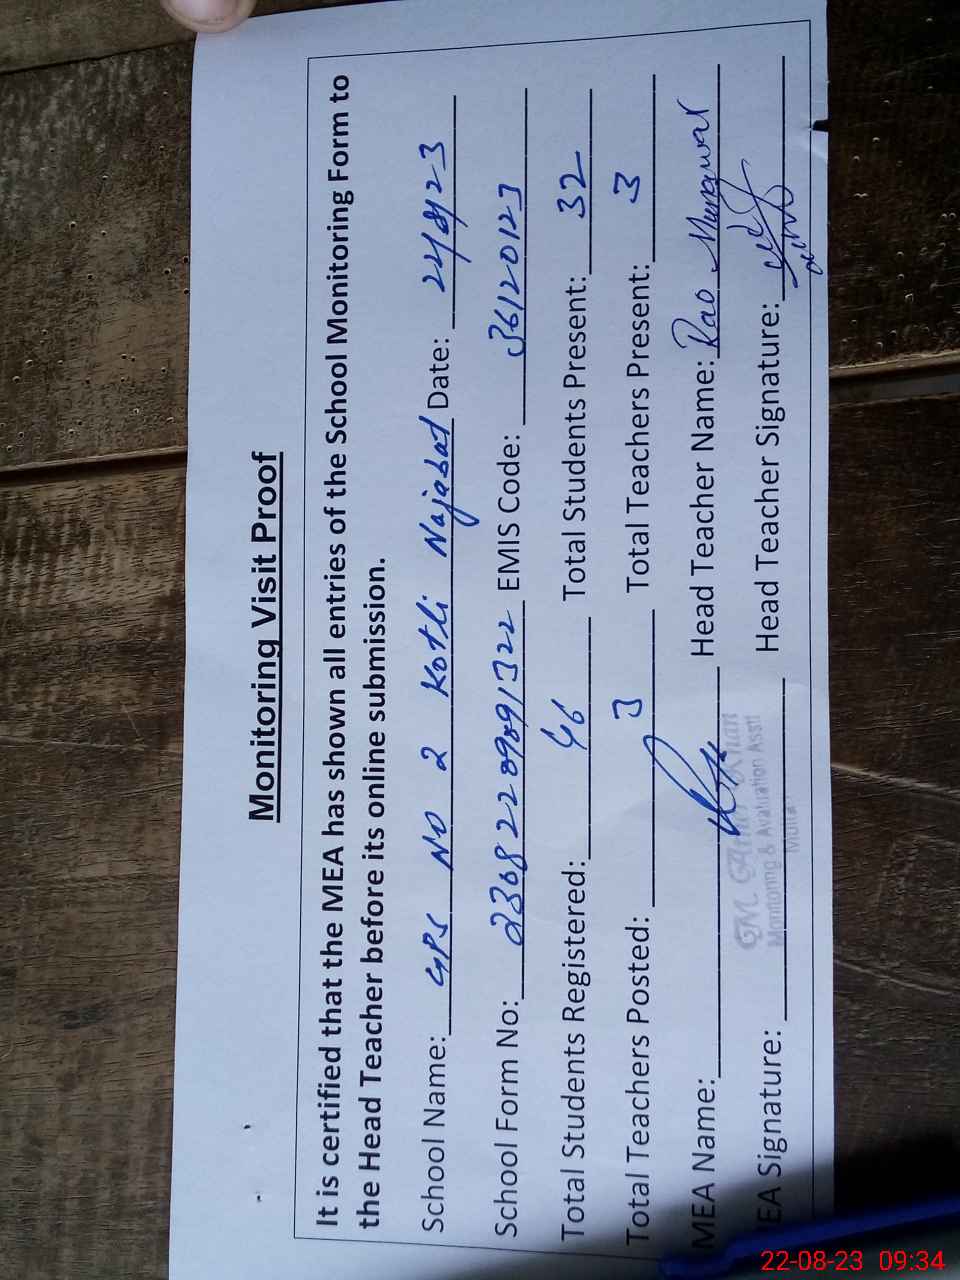 Monitoring Visit Proof
It is certified that the MEA has shown all entries of the School Monitoring Form to
the Head Teacher before its online submission.
School Name: GPS NO 2 Kotli Najabat Date: 22/8/23
School Form No: 23082289891322 EMIS Code: 36120123
Total Students Registered: 46 Total Students Present: 32
Total Teachers Posted: 3 Total Teachers Present: 3
MEA Name: Head Teacher Name: Rao Munawar
GM. Khan
Monitoring & Avaluation Asstt
EA Signature: Head Teacher Signature:
22-08-23 09:34